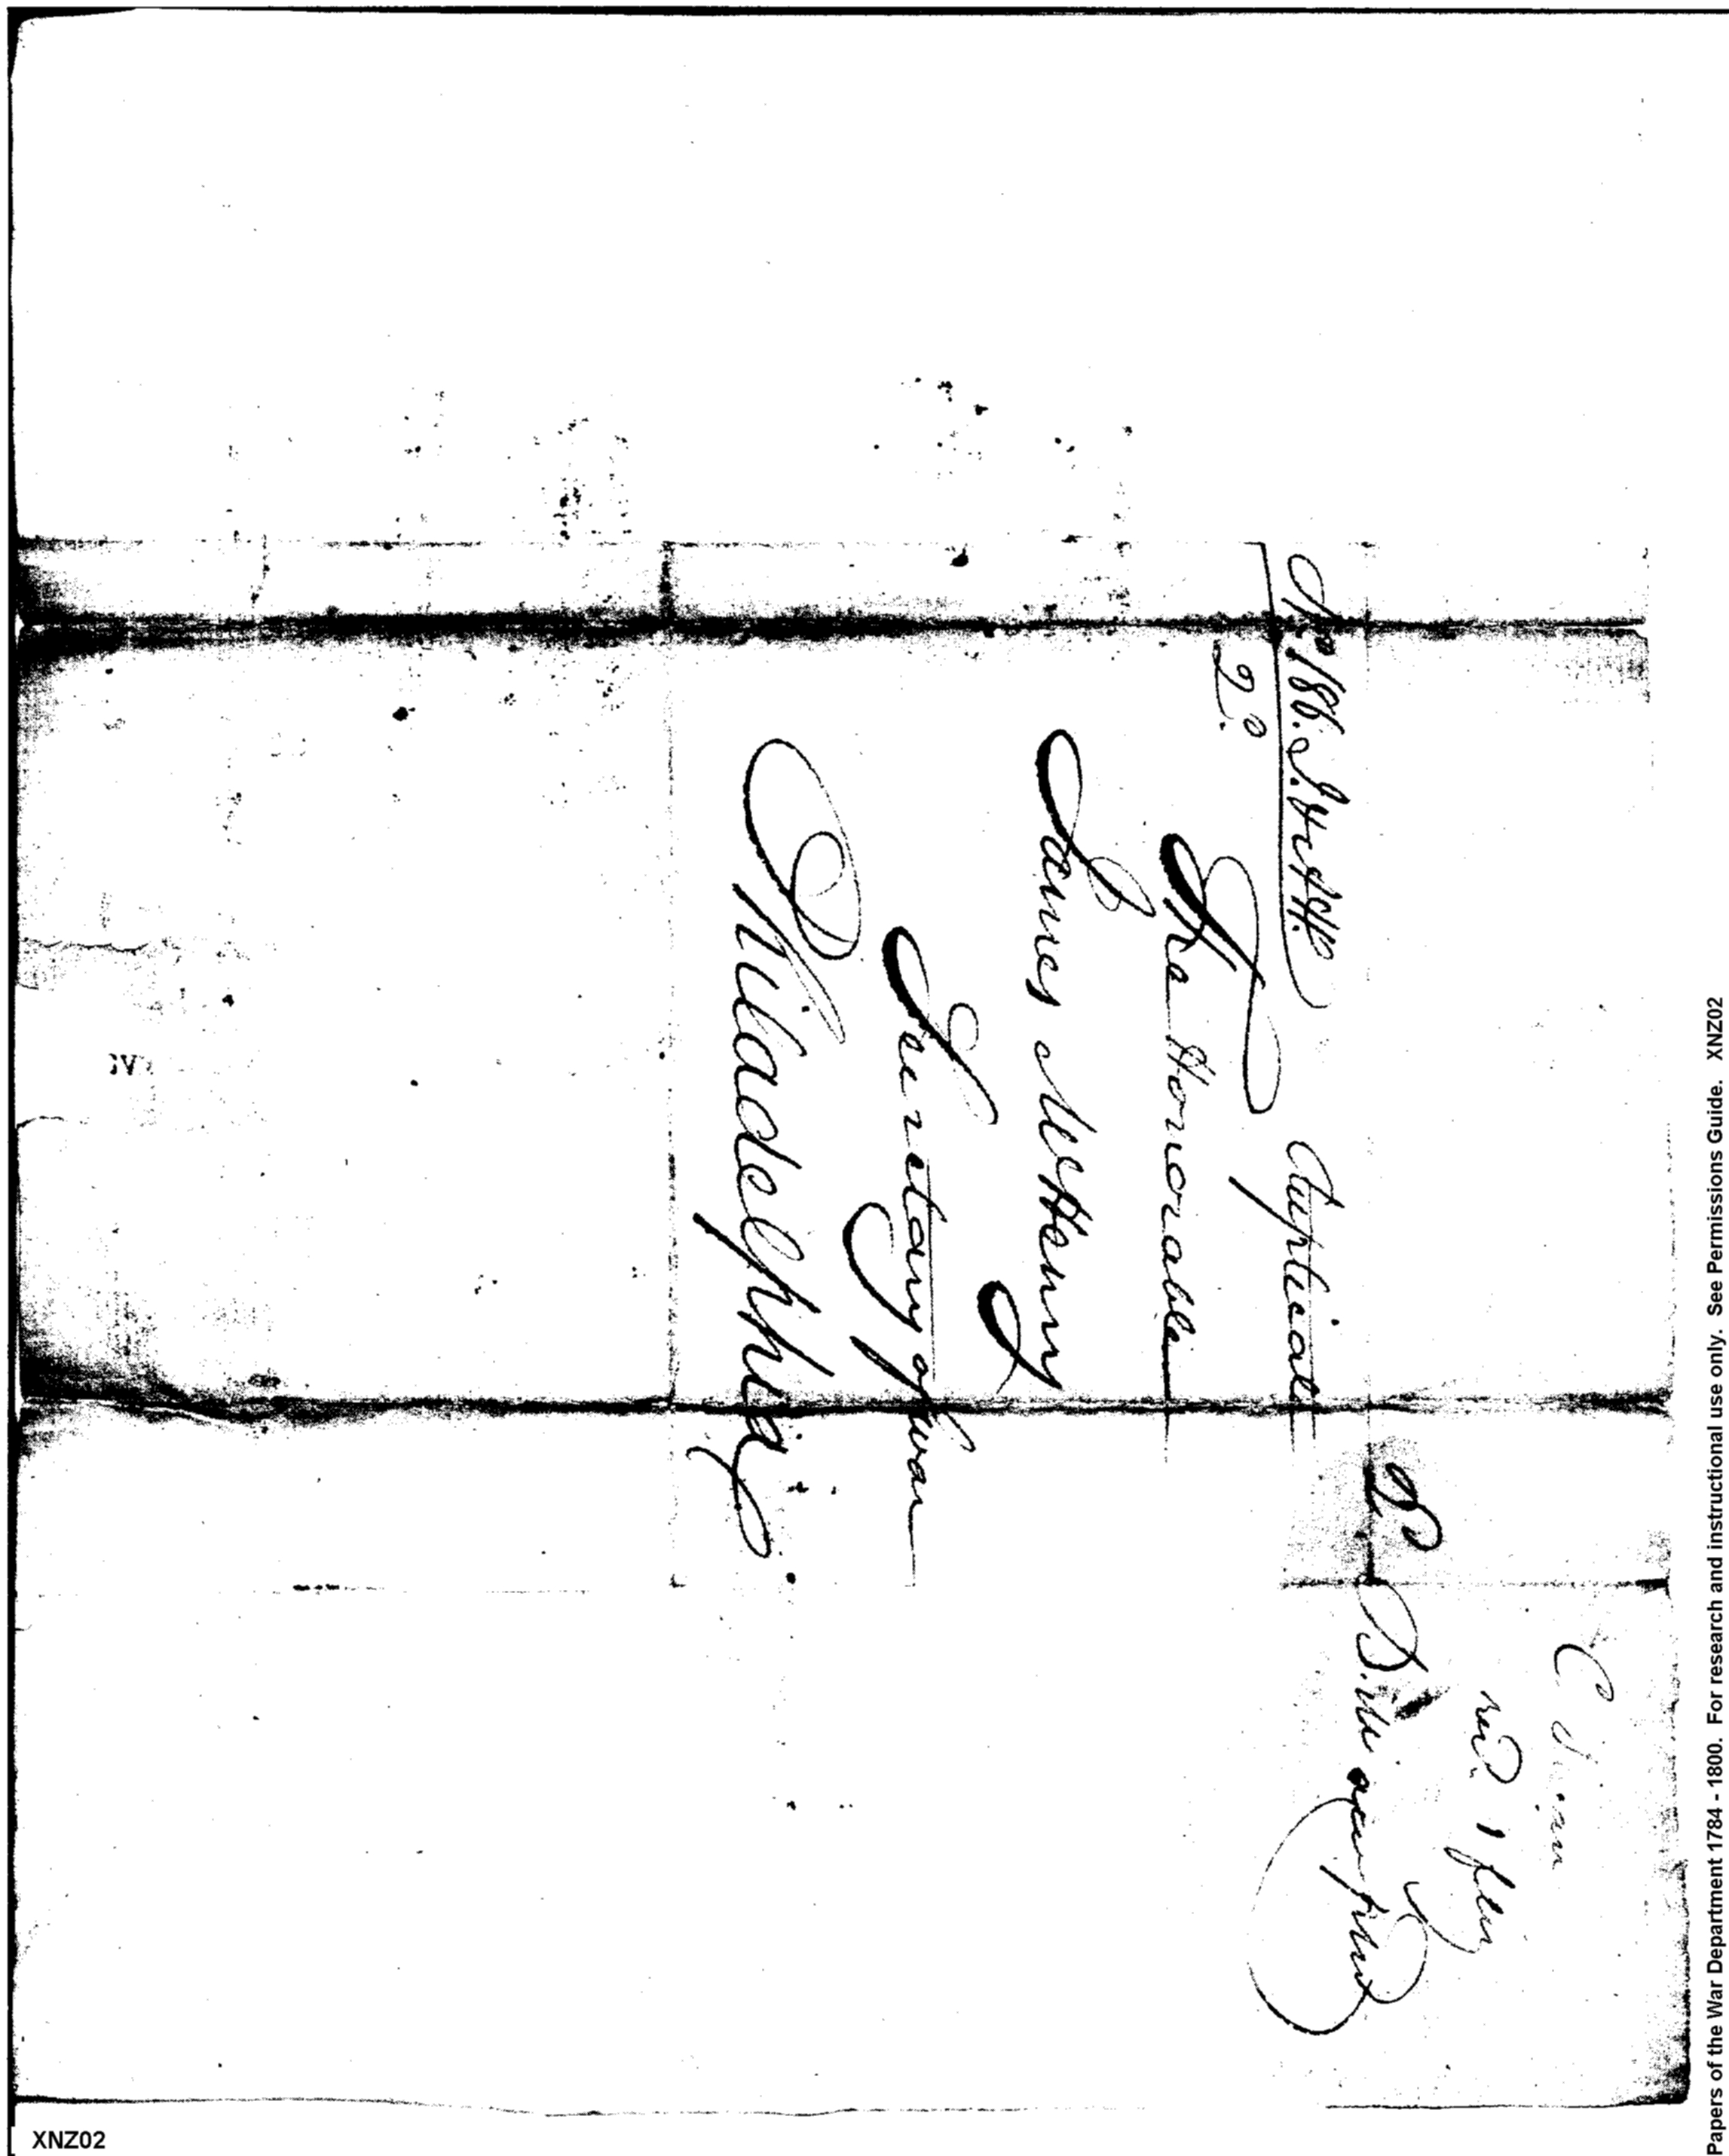 No 186. S. Wr. Wr.
2o.
Duplicate
The Honorable
James McHenry
Secretary of war
Philadelphia
recd. 1 feby
Papers of the War Department 1784 - 1800. For research and instructional use only. See Permissions Guide. XNZ02
XNZ02